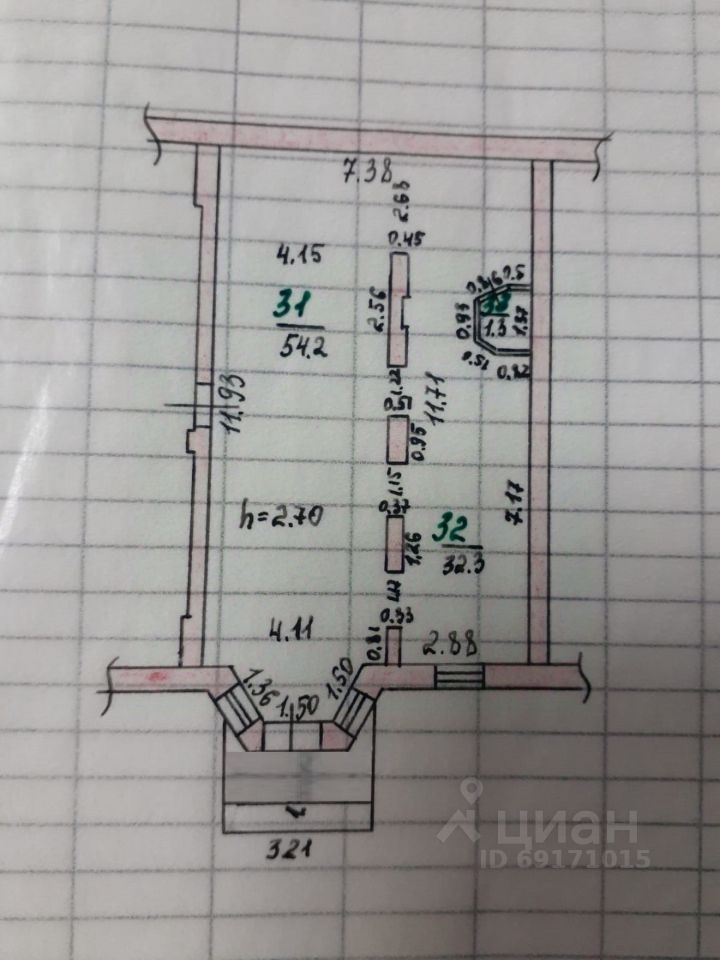 7.38
2.68
0.45
4.15
31
54.2
2.56
0.5
33
1.3
1.37
0.93
0.51
0.82
1.22
11.93
11.71
0.95
1.15
0.37
h=2.70
7.17
32
32.3
1.26
0.33
0.81
4.11
2.88
1.36
1.50
1.50
321
циан
ID 69171015